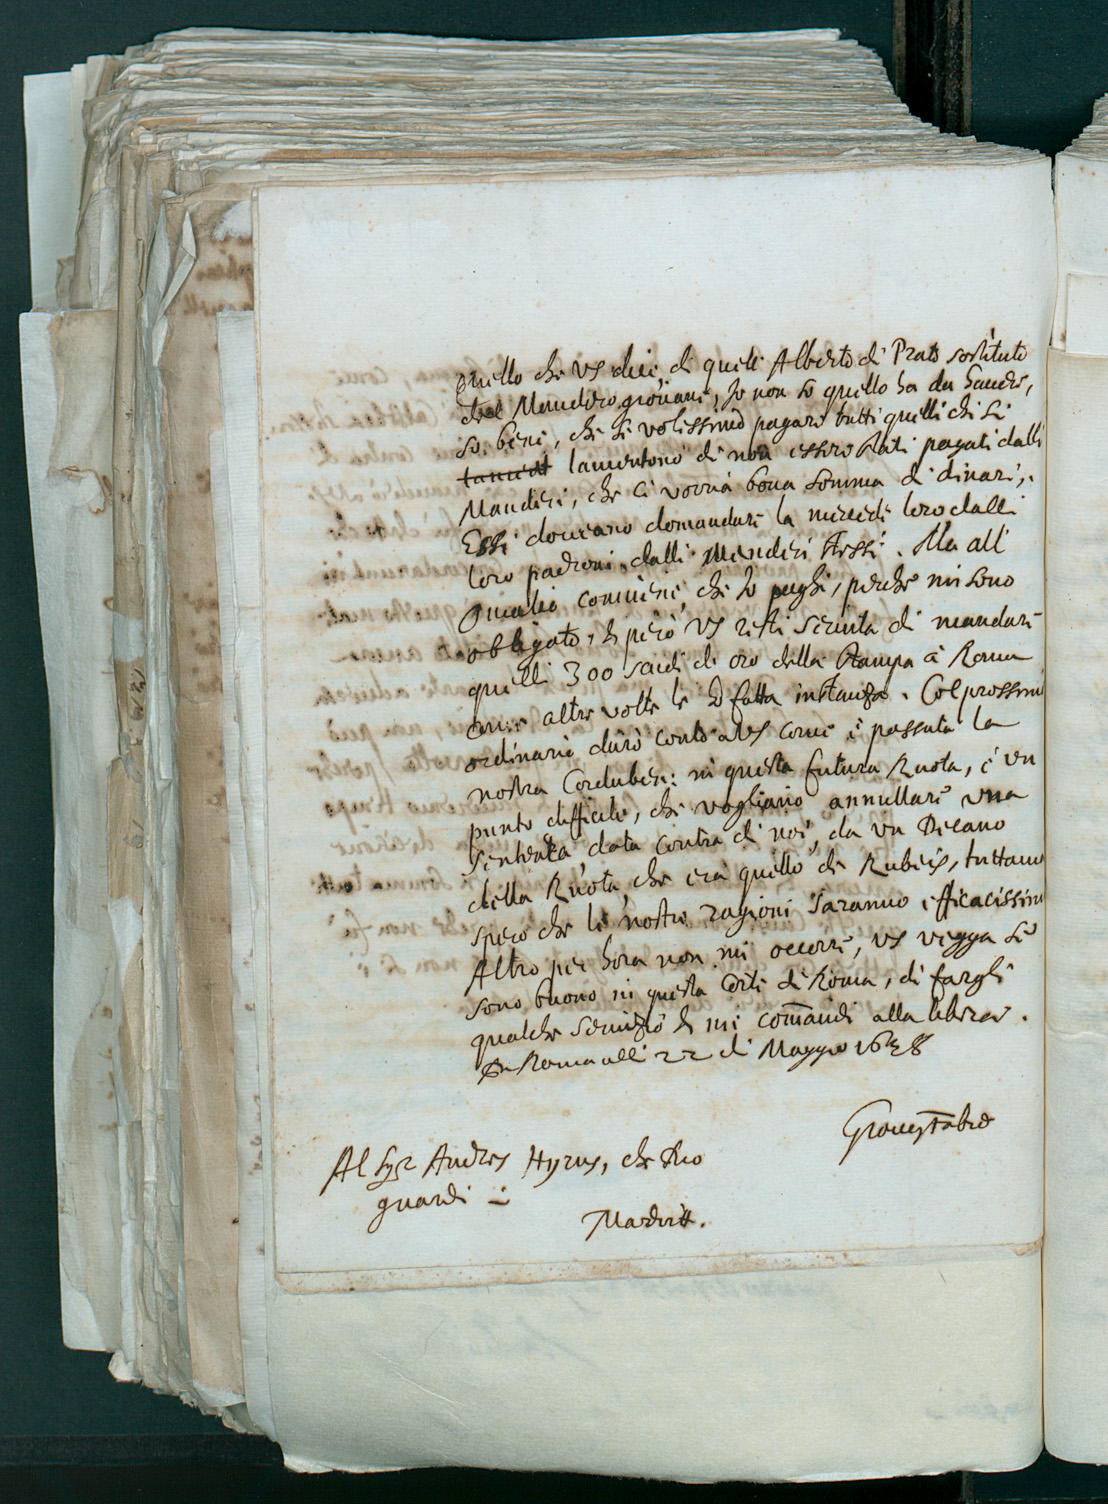 Quello che VS dice, di quell Alberto di Prato sostituto
del Mandosio giovane, Io non so quello ha da havere,
so bene, che si volessimo pagare tutti quelli che si
lamentono di non essere stati pagati dalli
Mandosi, che ci vorria bona somma di dinari,
Essi doveano domandare la mercede loro dalli
loro padroni, dalli Mandosi stessi. Ma all
Omalio conviene, che Io paghi, perche mi sono
obligato, et però VS resti servita di mandare
quelli 300 scudi di oro della stampa à Roma
come altre volte le ho fatta instanza. Col prossimo
ordinario darò conto a VS come è passata la
nostra Corduben: in questa futura Ruota, è un
punto difficile, che vogliano annullare una
sentenza, data contra di noi, da un Decano
della Ruota, che era quello di Rubeis, tuttavia
spero che le nostre ragioni saranno efficacissime
Altro per hora non mi occorre, VS vegga se
sono buono in questa Corte di Roma, di fargli
qualche servizio et mi comandi alla libera.
Da Roma alli 22 di Maggio 1638
Al Sgr Andres Hyrus, che Dio
guardi
Madritt.